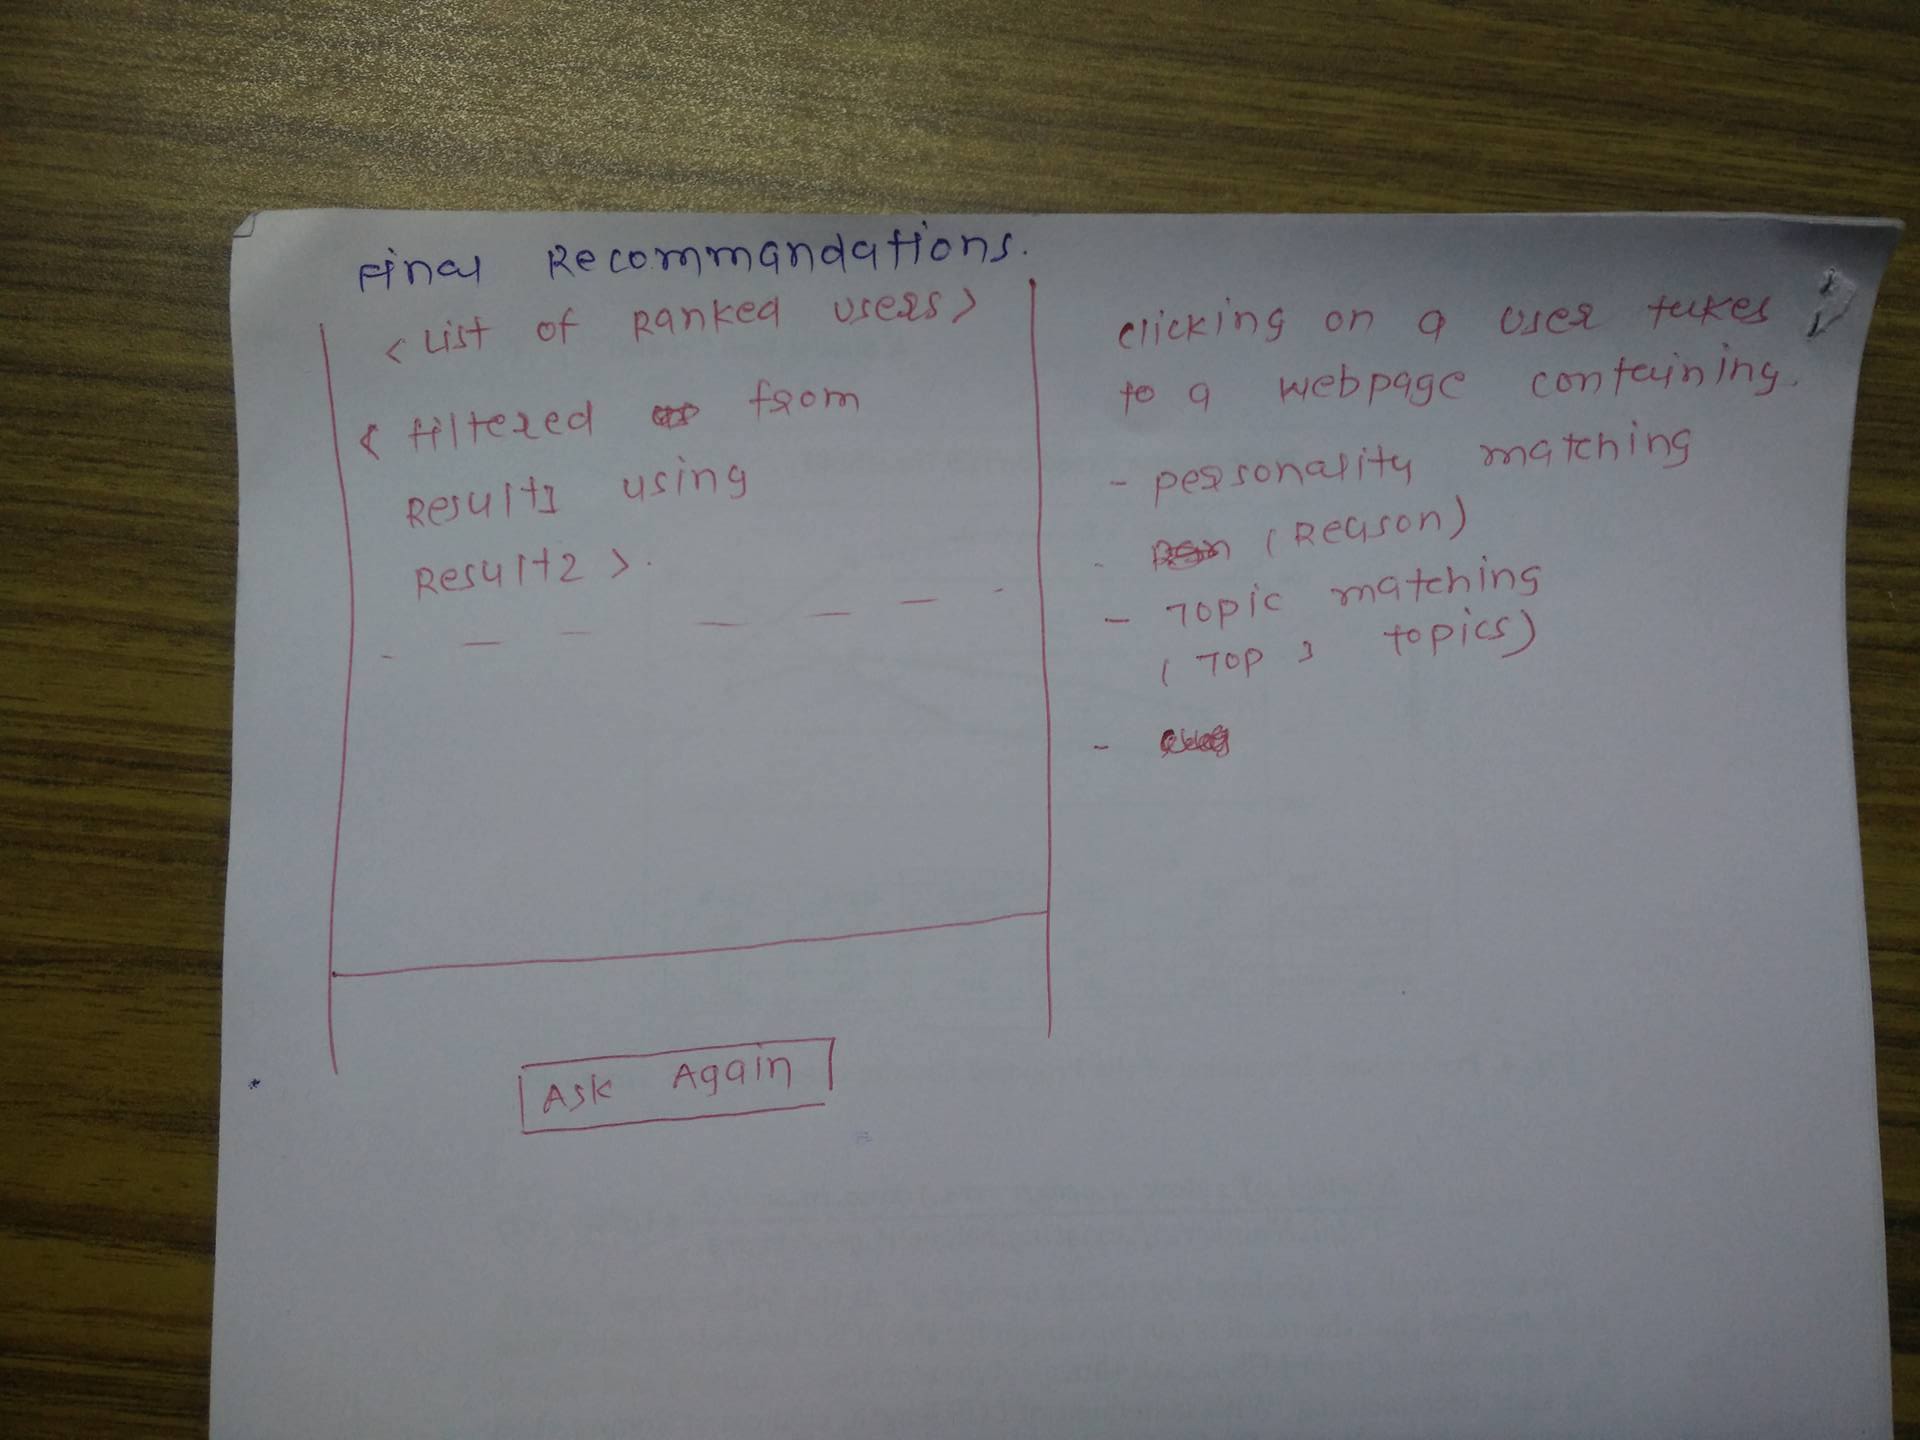 Final Recommandations.
< List of Ranked users >
< filtered from
Result1 using
Result2 > .
Ask Again
clicking on a user takes
to a webpage containing.
- personality matching
- (Reason)
- Topic matching
( Top 3 topics)
-